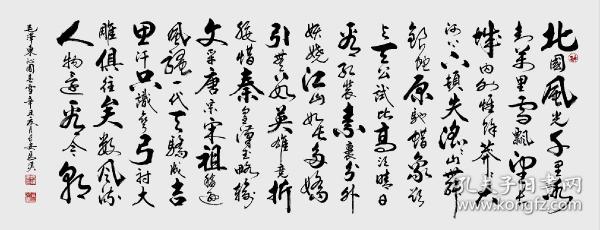 北國風光千里冰
封萬里雪飄望長
城內外惟餘莽莽大
河上下頓失滔滔山舞
銀蛇原馳蠟象欲
與天公試比高須晴日
看紅裝素裹分外
妖嬈江山如此多嬌
引無數英雄競折
腰惜秦皇漢武略輸
文采唐宗宋祖稍遜
風騷一代天驕成吉
思汗只識彎弓射大
雕俱往矣數風流
人物還看今朝
毛澤東沁園春雪辛丑
孔夫子旧书网